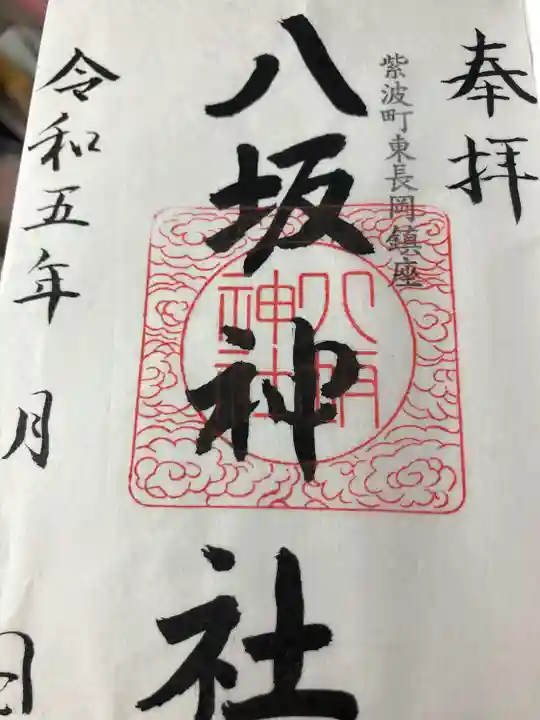 奉拝
紫波町東長岡鎮座
八坂神社
八坂
神社
令和五年 月 日